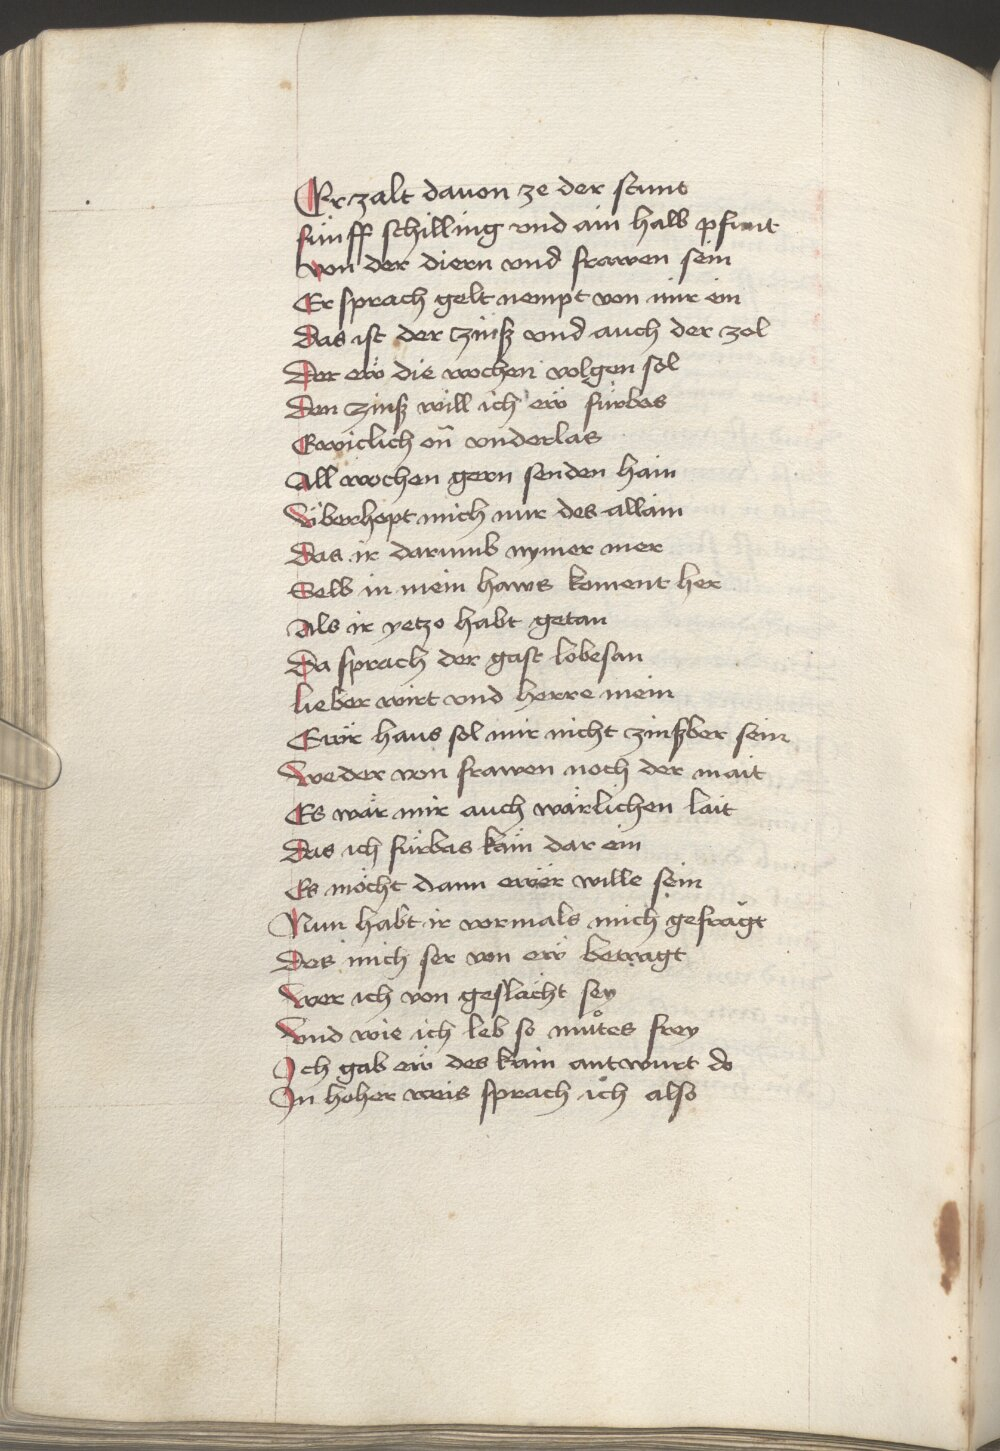 Er zalt dauon ze der stunt
fünff schilling vnd ain halb pfunt
von der diern vnd frawen sein
Er sprach gelt nempt von mir ein
Das ist der zinß vnd auch der zol
Der eẅ die wochen volgen sol
Den zinß will ich eẅ fürbas
Ewiclich on̄ vnderlas
All wochen gern senden haim
Überhept mich nur des allain
Das ir darumb nymer mer
Selb in mein haws koment her
Als ir yetzo habt getan
Da sprach der gast lobesan
lieber wirt vnd herre mein
Ewr̈ haus sol mir nicht zinßber sein
Weder von frawen noch der mait
Es wär mir auch wärlichen lait
Das ich fürbas käm dar ein
Es möcht dann ewër wille sein
Nun habt ir vormals mich gefrägt
Des mich ser von eẅ beträgt
Wer ich von geslächt sey
Vnd wie ich leb so můtes frey
Ich gab eẅ des kain antwurt do
In hoher weis sprach ich also